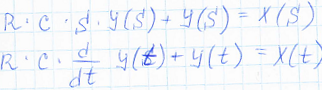 R · C · S · Y(S) + Y(S) = X(S)
R · C · d/dt y(t) + y(t) = x(t)